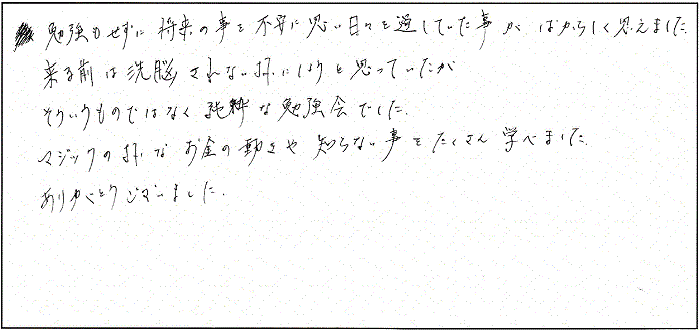 勉強もせずに将来の事を不安に思い日々を過していた事がばからしく思えました
来る前は洗脳されない様にしようと思っていたが
そういうものではなく純粋な勉強会でした。
マジックの様なお金の動きや知らない事をたくさん学べました。
ありがとうございました。